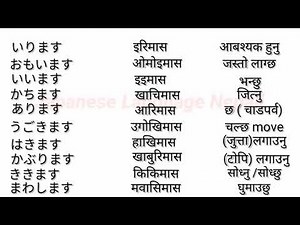 いります इरिमास आबश्यक हुनु
おもいます ओमोइमास जस्तो लाग्छ
いいます इइमास भन्छु
かちます खाचिमास जित्नु
あります आरिमास छ ( चाडपर्व)
うごきます उगोखिमास चल्छ move
はきます हाखिमास (जुत्ता)लगाउनु
かぶります खाबुरिमास (टोपि) लगाउनु
ききます किकिमास सोध्नु /सोध्छु
まわします मवासिमास घुमाउछु